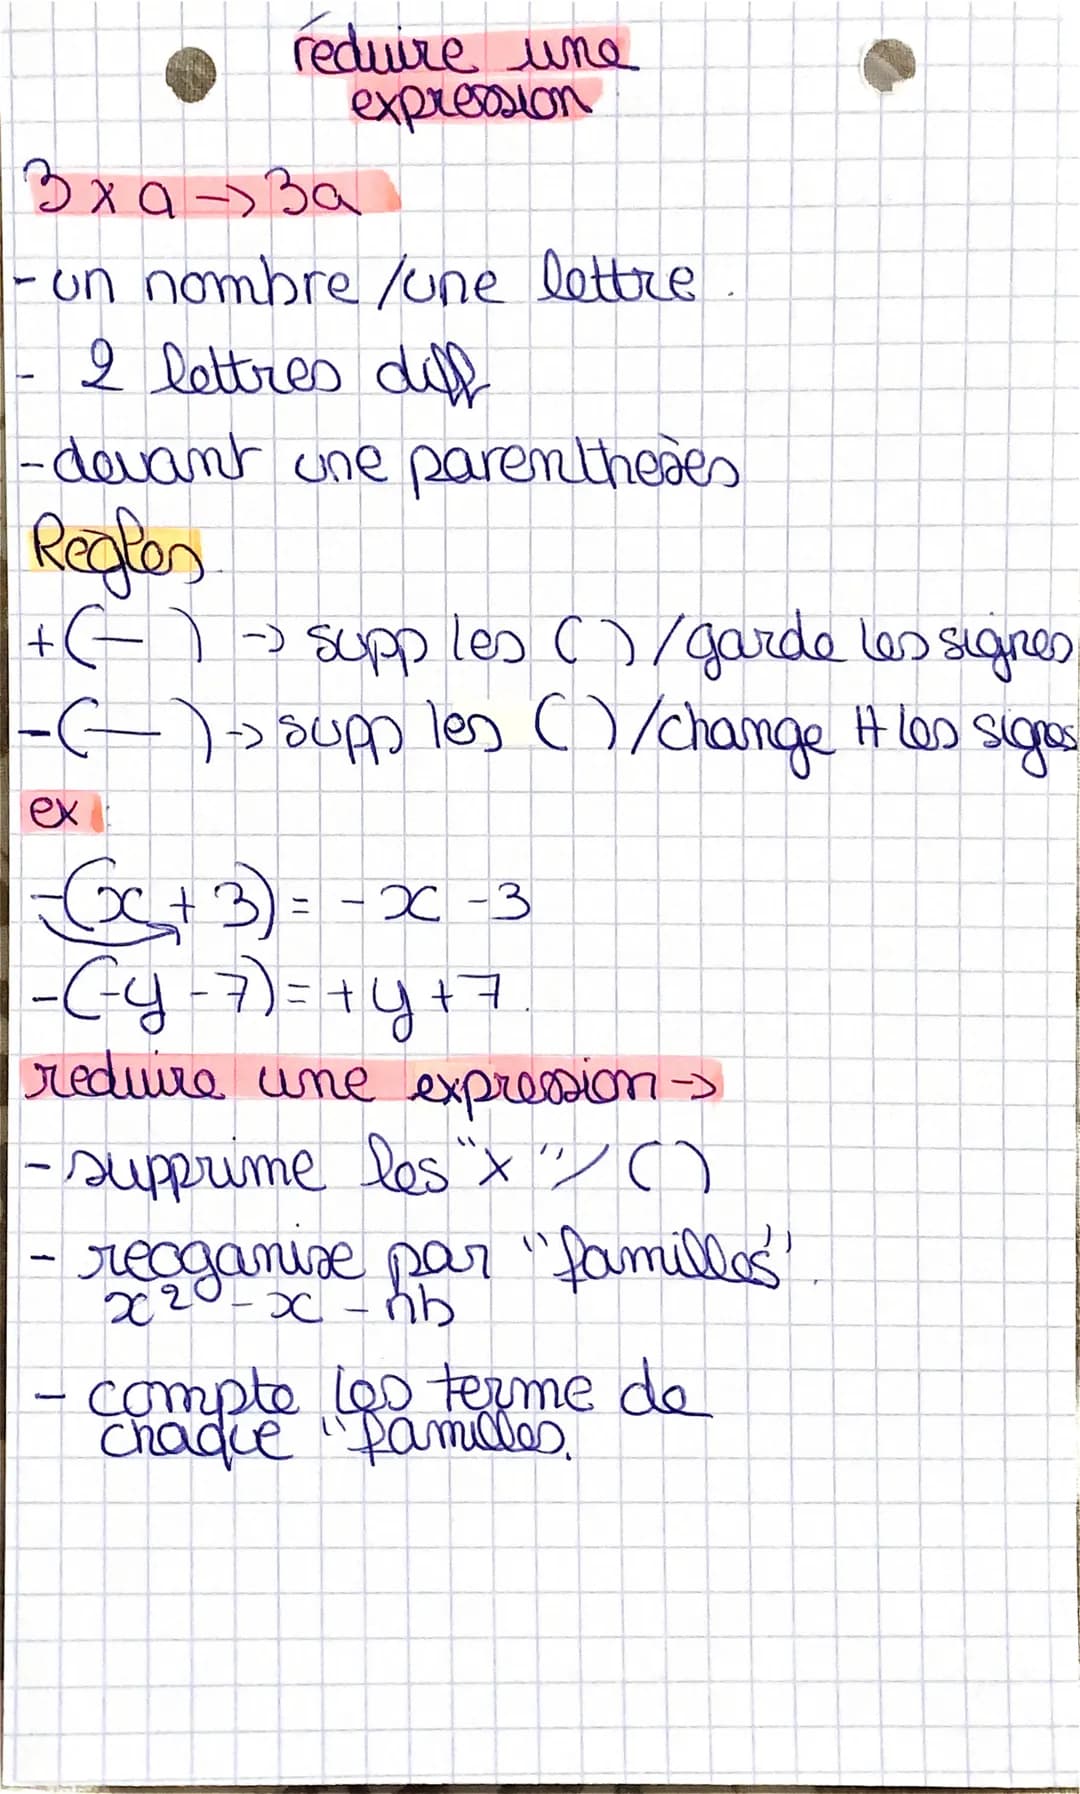 réduire une
expression
3 x a -> 3a
- un nombre / une lettre.
- 2 lettres diff
- devant une parenthesès
Regles
+(—) -> supp les () / garde les signes
-(—) -> supp les () / change tt les signes
ex :
-(x + 3) = - x - 3
-(-y - 7) = + y + 7.
reduire une expression ->
- supprime les "x" / ()
- reoganise par "familles".
x² - x - nb
- compte les terme de
chaque "familles.